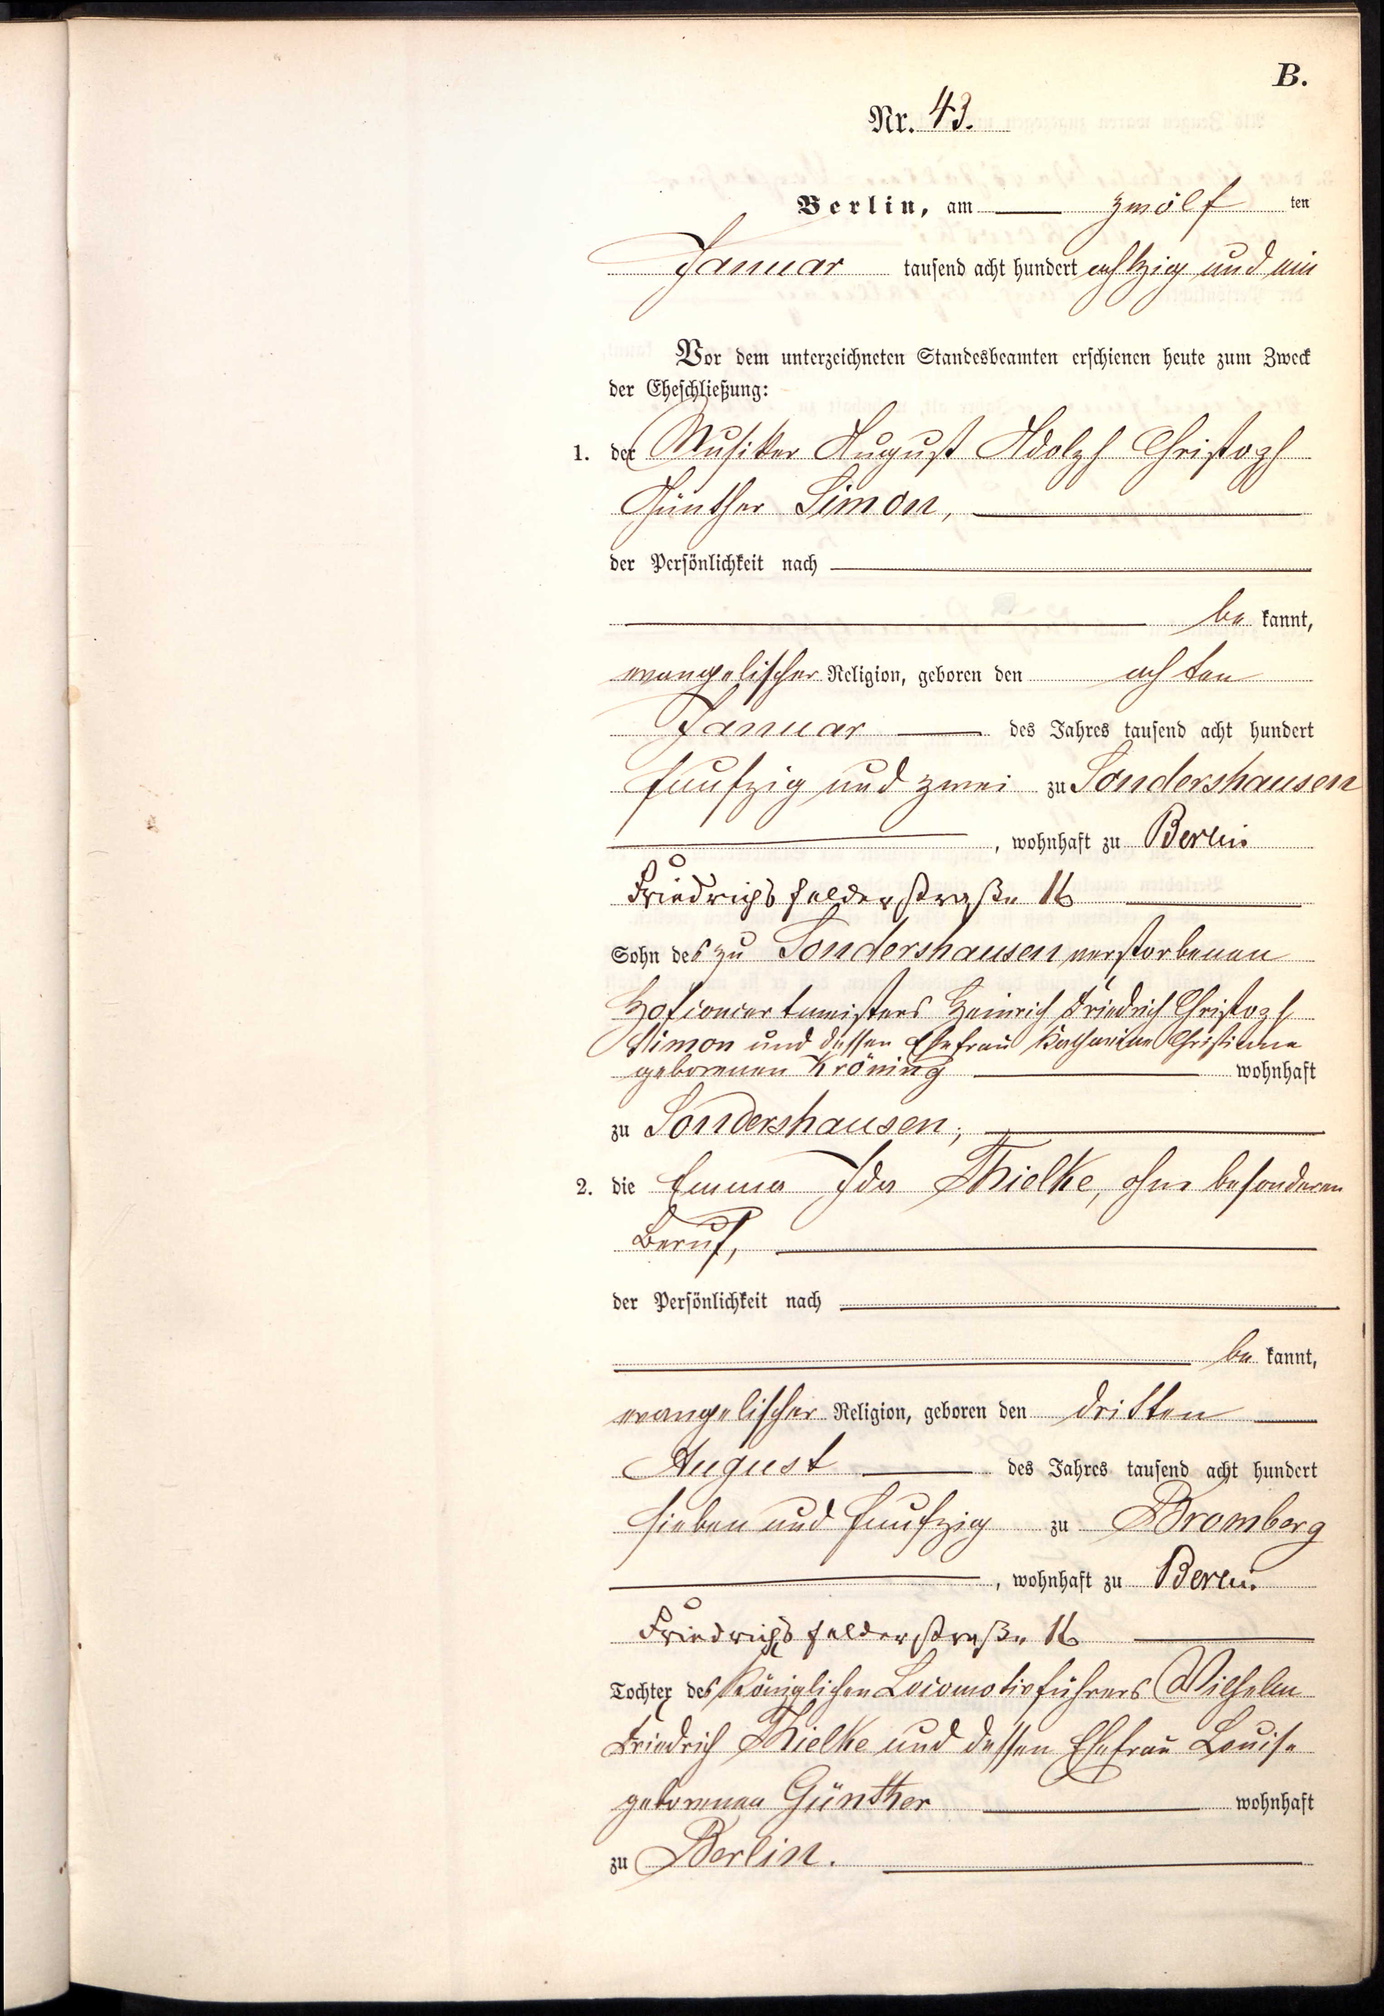 B.
Nr. 43.
Berlin, am zwölf ten
Januar tausend acht hundert achtzig und ein
Vor dem unterzeichneten Standesbeamten erschienen heute zum Zweck
der Eheschließung:
1. der Musiker August Adolph Christoph
Günther Simon,
der Persönlichkeit nach
be kannt,
evangelischer Religion, geboren den achten
Januar des Jahres tausend acht hundert
funfzig und zwei zu Sondershausen
, wohnhaft zu Berlin
Friedrichsfelderstraße 16
Sohn des zu Sondershausen verstorbenen
Hofconcertmeisters Heinrich Friedrich Christoph
Simon und dessen Ehefrau Katharine Christiane
geborenen Kröning wohnhaft
zu Sondershausen;
2. die Emma Ida Thielke, ohne besonderen
Beruf,
der Persönlichkeit nach
be kannt,
evangelischer Religion, geboren den dritten
August des Jahres tausend acht hundert
sieben und funfzig zu Bromberg
, wohnhaft zu Berlin
Friedrichsfelderstraße 16
Tochter des Königlichen Locomotivführers Wilhelm
Friedrich Thielke und dessen Ehefrau Louise
geborenen Günther wohnhaft
zu Berlin.